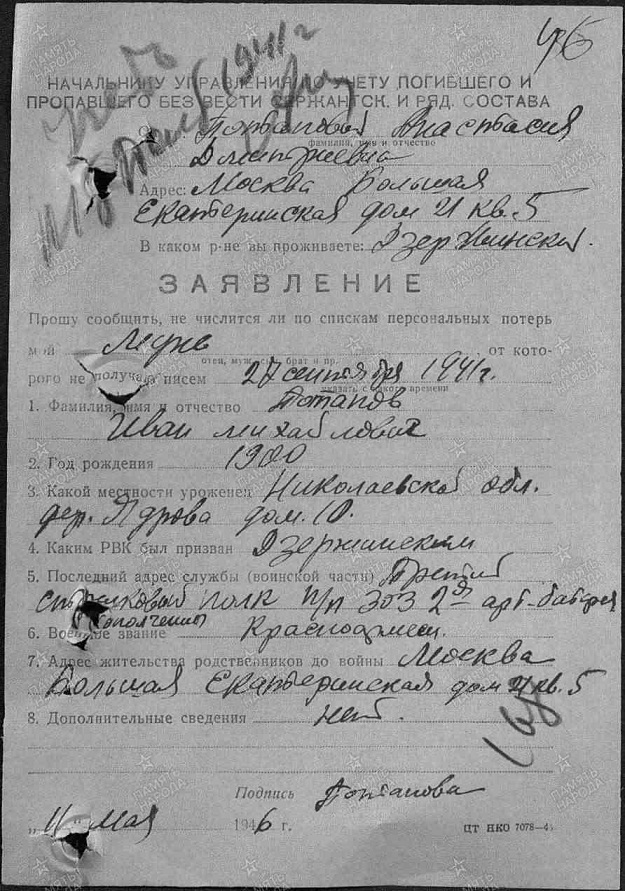 46
1941 г
НАЧАЛЬНИКУ УПРАВЛЕНИЯ ПО УЧЕТУ ПОГИБШЕГО И
ПРОПАВШЕГО БЕЗ ВЕСТИ СЕРЖАНТСК. И РЯД. СОСТАВА
Потаповой Анастасия
фамилия, имя и отчество
Дмитриевна
Адрес: Москва Большая
Екатеринская дом 21 кв. 5
В каком р-не вы проживаете: Дзержинский.
ЗАЯВЛЕНИЕ
Прошу сообщить, не числится ли по спискам персональных потерь
мой Муж от кото-
отец, муж, сын, брат и пр.
рого не получала писем 27 сентября 1941 г.
указать с какого времени
1. Фамилия, имя и отчество Потапов
Иван Михайлович
2. Год рождения 1900
3. Какой местности уроженец Николаевской обл.
дер. Ядрова дом. 10.
4. Каким РВК был призван Дзержинским
5. Последний адрес службы (воинской части) Третий
стрелковый полк п/п 303 2ая арт-батарея
ополчения
6. Военное звание Красноармеец.
7. Адрес жительства родственников до войны Москва
Большая Екатеринская дом 21 кв. 5
8. Дополнительные сведения нет.
Подпись Потапова
„11" Мая 1946 г. ЦТ НКО 7078—4
ПАМЯТЬ НАРОДА